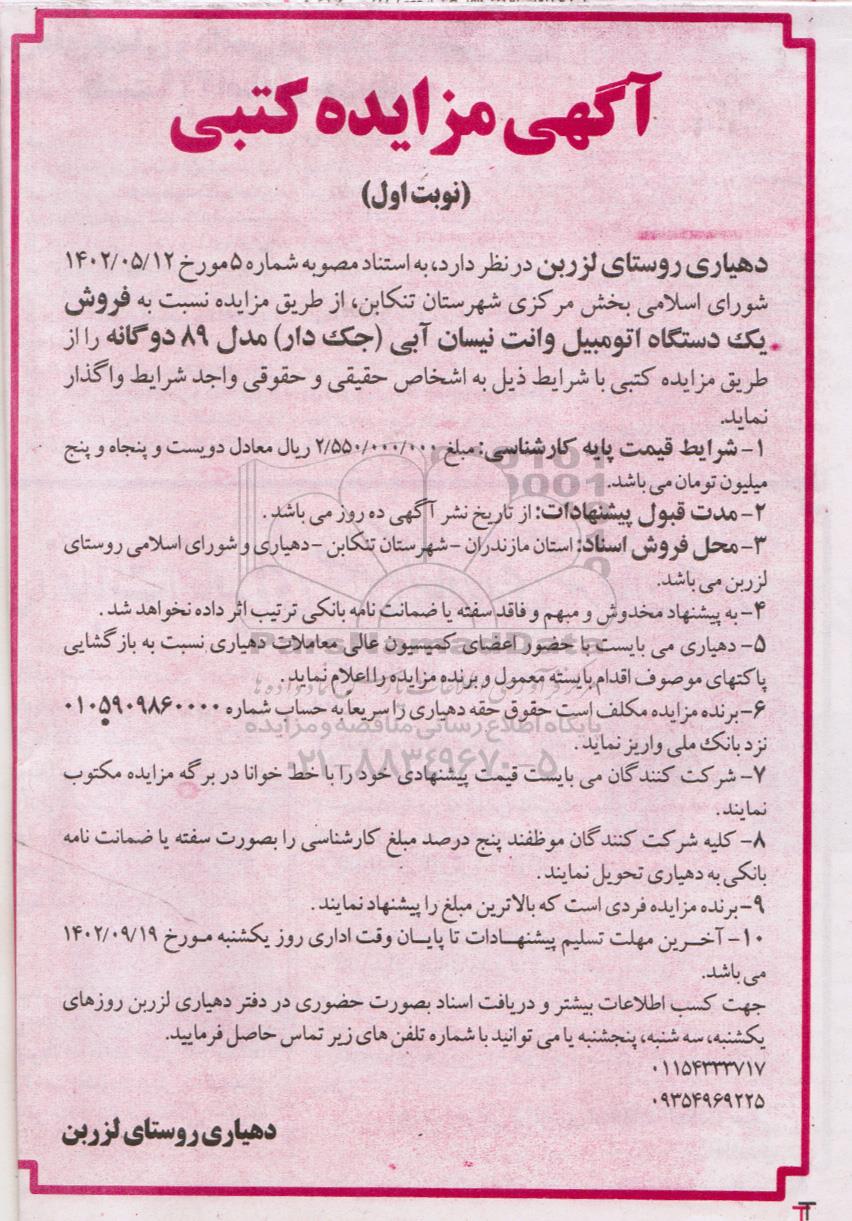 آگهی مزایده کتبی
(نوبت اول)
دهیاری روستای لزربن در نظر دارد، به استناد مصوبه شماره ۵ مورخ ۱۴۰۲/۰۵/۱۲
شورای اسلامی بخش مرکزی شهرستان تنکابن، از طریق مزایده نسبت به فروش
یک دستگاه اتومبیل وانت نیسان آبی (جک دار) مدل ۸۹ دوگانه را از
طریق مزایده کتبی با شرایط ذیل به اشخاص حقیقی و حقوقی واجد شرایط واگذار
نماید.
۱- شرایط قیمت پایه کارشناسی: مبلغ ۲/۵۵۰/۰۰۰/۰۰۰ ریال معادل دویست و پنجاه و پنج
میلیون تومان می باشد.
۲- مدت قبول پیشنهادات: از تاریخ نشر آگهی ده روز می باشد .
۳- محل فروش اسناد: استان مازندران - شهرستان تنکابن - دهیاری و شورای اسلامی روستای
لزربن می باشد.
۴- به پیشنهاد مخدوش و مبهم و فاقد سفته یا ضمانت نامه بانکی ترتیب اثر داده نخواهد شد .
۵- دهیاری می بایست با حضور اعضای کمیسیون عالی معاملات دهیاری نسبت به بازگشایی
پاکتهای موصوف اقدام بایسته معمول و برنده مزایده را اعلام نماید .
۶- برنده مزایده مکلف است حقوق حقه دهیاری را سریعا به حساب شماره ۰۱۰۵۹۰۹۸۶۰۰۰۰
نزد بانک ملی واریز نماید .
پایگاه اطلاع رسانی مناقصه و مزایده
۰۲۱-۸۸۳۴۹۶۷۰-۵
۷- شرکت کنندگان می بایست قیمت پیشنهادی خود را با خط خوانا در برگه مزایده مکتوب
نمایند .
۸- کلیه شرکت کنندگان موظفند پنج درصد مبلغ کارشناسی را بصورت سفته یا ضمانت نامه
بانکی به دهیاری تحویل نمایند .
۹- برنده مزایده فردی است که بالاترین مبلغ را پیشنهاد نمایند .
۱۰- آخرین مهلت تسلیم پیشنهادات تا پایان وقت اداری روز یکشنبه مورخ ۱۴۰۲/۰۹/۱۹
می باشد.
جهت کسب اطلاعات بیشتر و دریافت اسناد بصورت حضوری در دفتر دهیاری لزربن روزهای
یکشنبه، سه شنبه، پنجشنبه یا می توانید با شماره تلفن های زیر تماس حاصل فرمایید.
۰۱۱۵۴۳۳۳۷۱۷
۰۹۳۵۴۹۶۹۲۲۵
دهیاری روستای لزربن